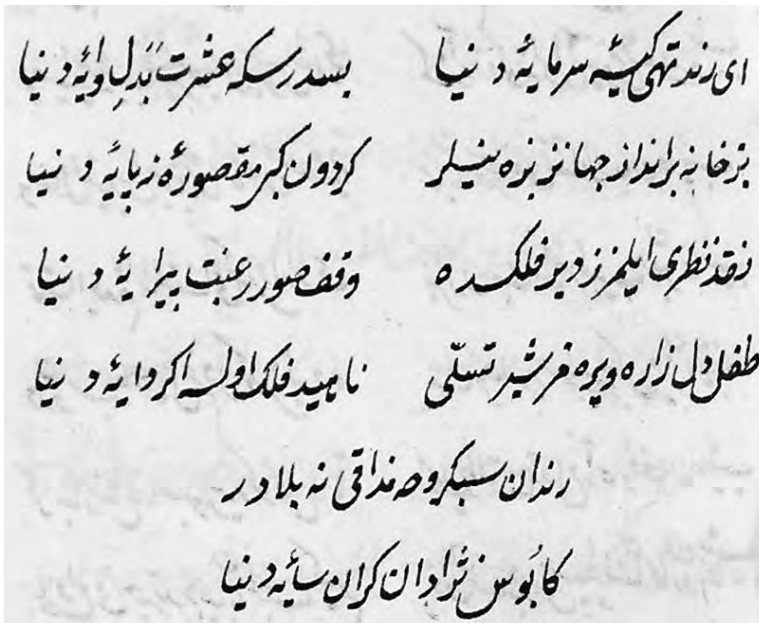 ای رند تهی کیسهٔ سرمایهٔ دنیا بسدر سکه عشرت بَدَلِ وایهٔ دنیا
بز خانه برانداز جهانز بزه نیلر کردون کبی مقصورهٔ نه پایهٔ دنیا
نقد نظری ایلمز ز دیر فلکده وقف صور رغبت پیرایهٔ دنیا
طفل دل زاره ویره مز شیر تسلّی ناهید فلک اولسه اکر دایهٔ دنیا
رندان سبکروحه مذاقی نه بلادر
کابوس نژادان کران سایهٔ دنیا